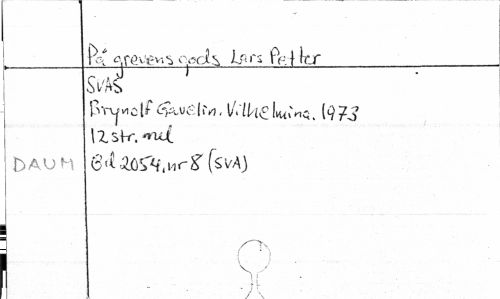 På grevens gods Lars Petter
SVAS
Brynolf Gavelin. Vilhelmina. 1973
12 str. mel
DAUM Bd 2054, nr 8 (SVA)